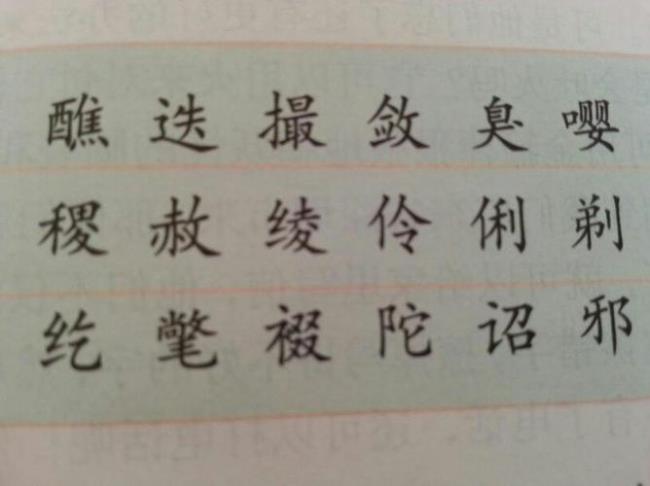 醮 迭 撮 敛 臭 嘤
稷 赦 绫 伶 俐 剃
纥 氅 裰 陀 诏 邪